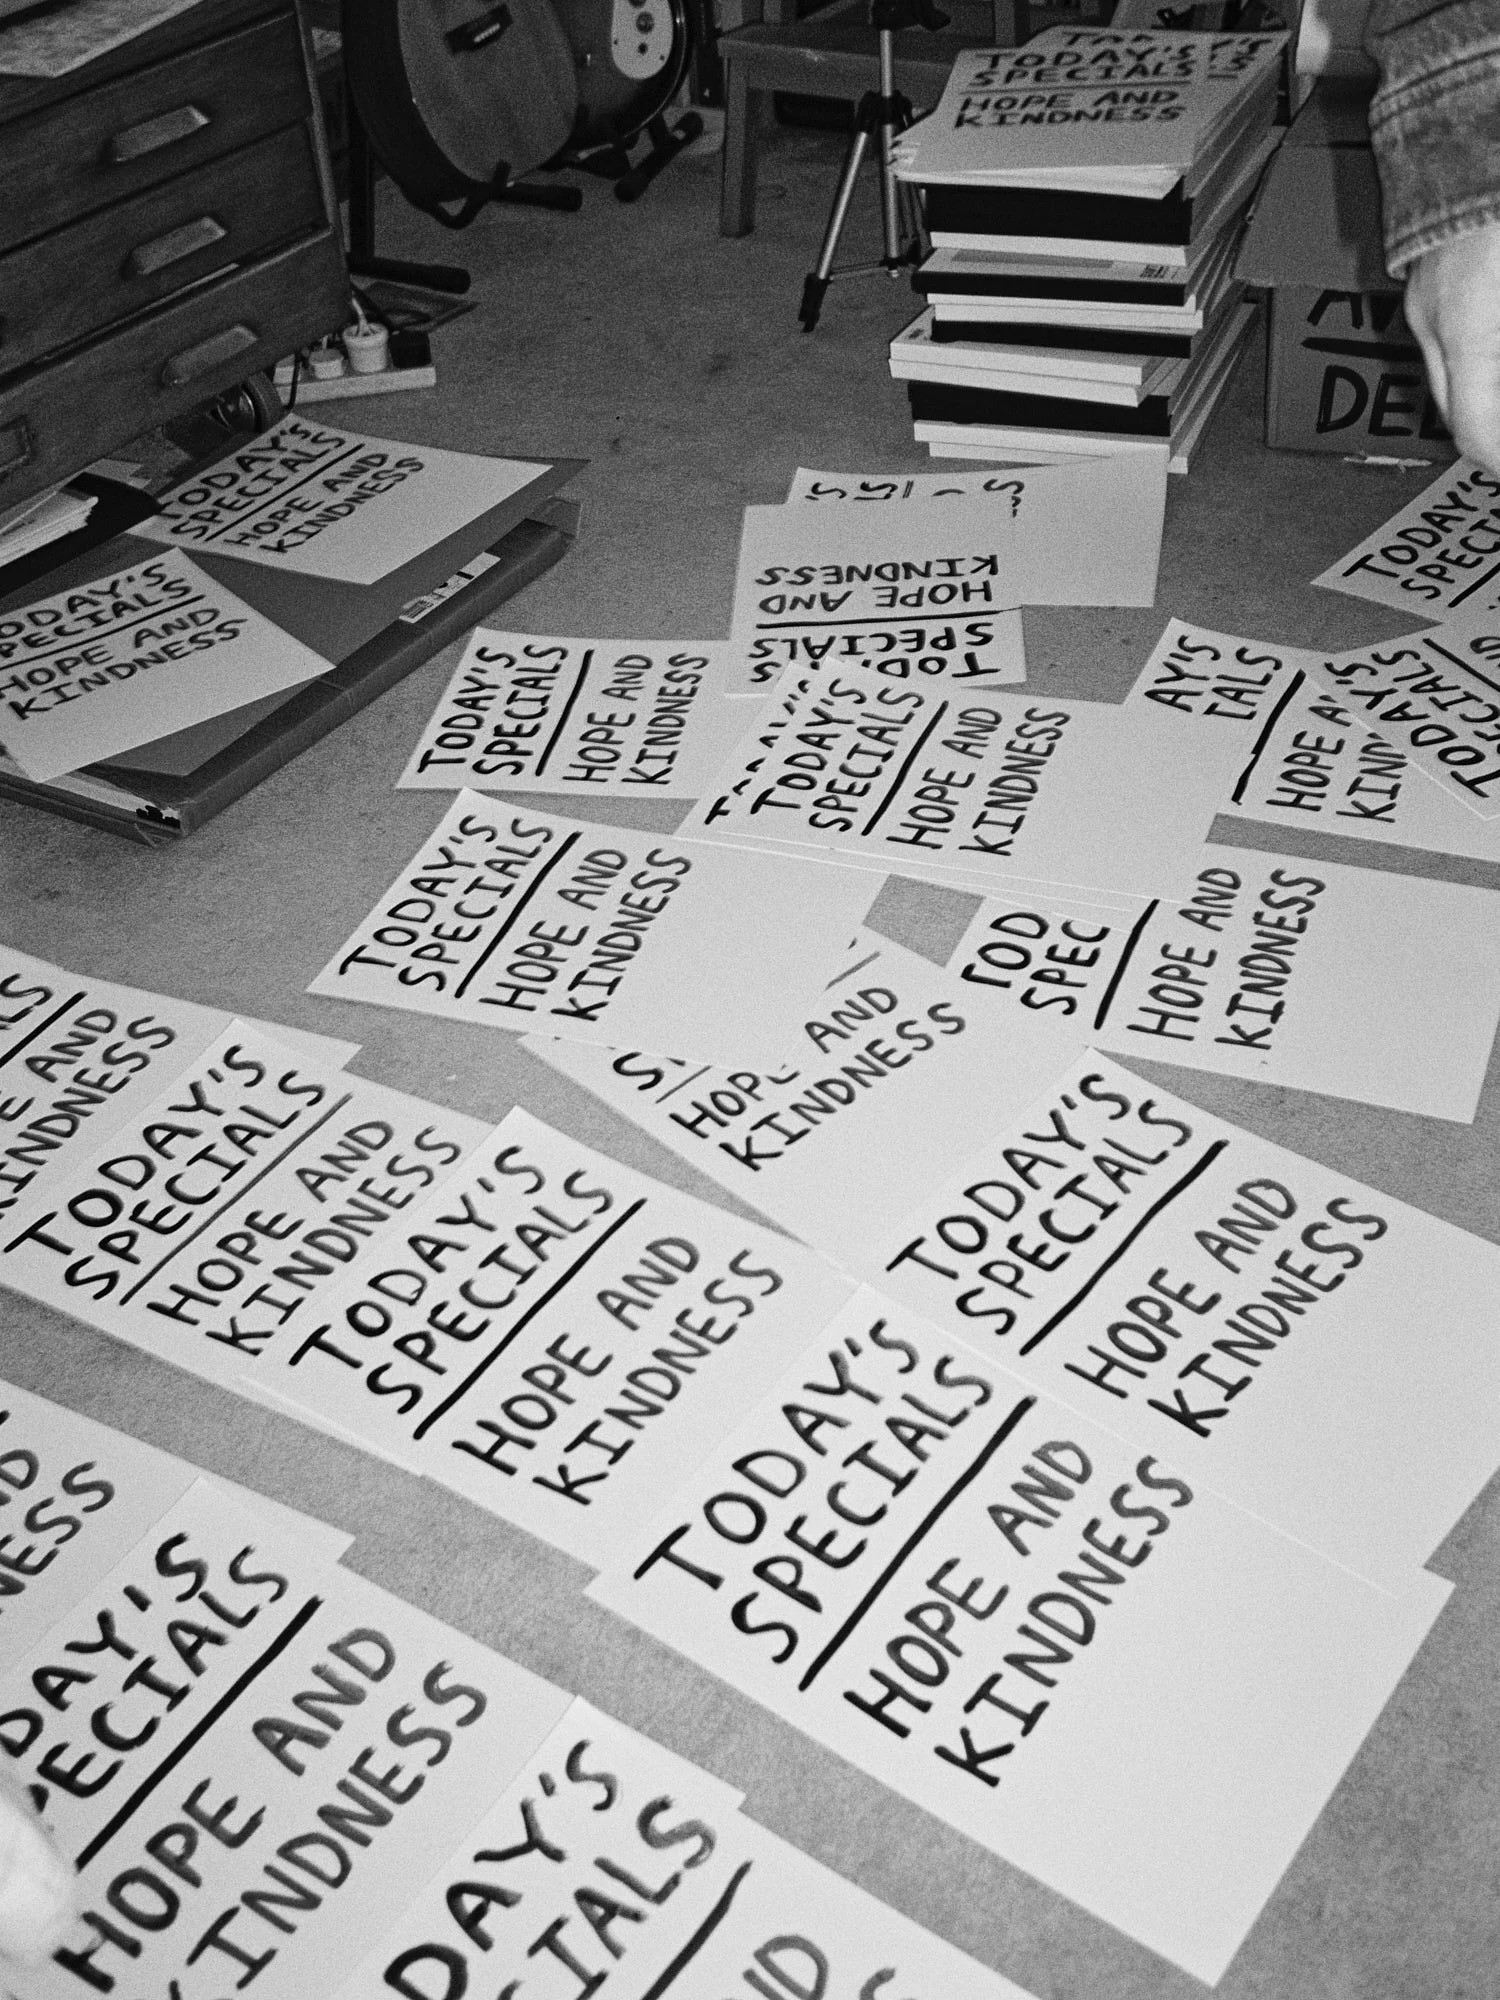 TODAY'S
SPECIALS
HOPE AND
KINDNESS
DEL
TODAY'S
SPECIALS
HOPE AND
KINDNESS
ODAY'S
PECIALS
HOPE AND
KINDNESS
SPECIALS
HOPE AND
KINDNESS
TODAY'S
SPECIAL
TODAY'S
SPECIALS
HOPE AND
KINDNESS
TODAY'S
SPECIALS
HOPE AND
KINDNESS
AY'S
IALS
HOPE A
TODAY'S
SPECIALS
TODAY'S
SPECIALS
HOPE AND
KINDNESS
TOD
SPEC
HOPE AND
KINDNESS
HOPE AND
KINDNESS
AND
KINDNESS
TODAY'S
SPECIALS
HOPE AND
KINDNESS
TODAY'S
SPECIALS
HOPE AND
KINDNESS
TODAY'S
SPECIALS
HOPE AND
KINDNESS
TODAY'S
SPECIALS
HOPE AND
KINDNESS
ND
NESS
DAY'S
PECIALS
HOPE AND
KINDNESS
DAY'S
CIALS
ND